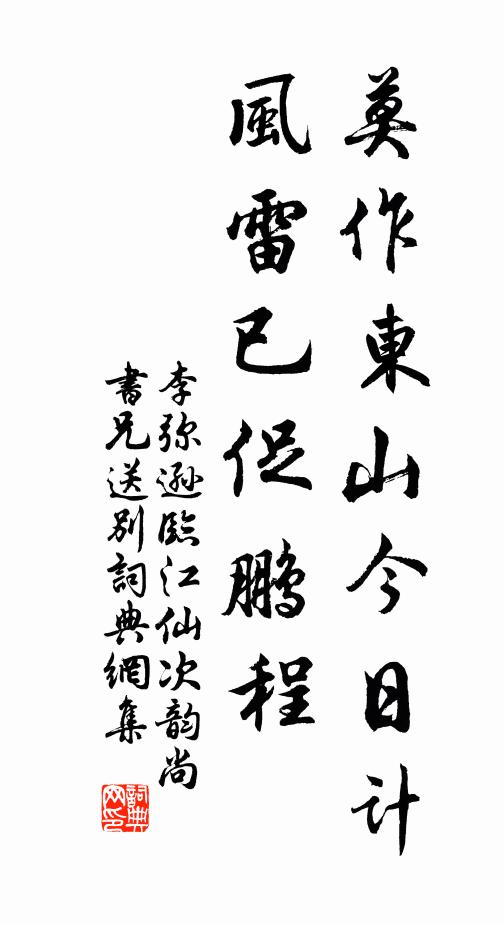 莫作東山今日计
風雷已促鵬程
李弥遜臨江仙次韵尚
書兄送别詞典網集
詞典
网印